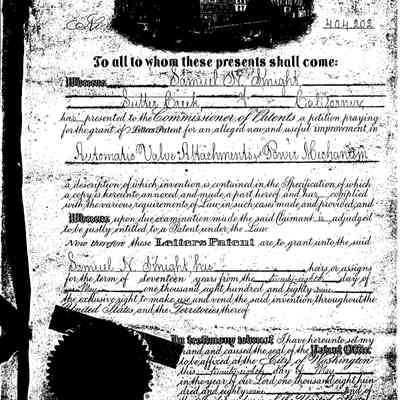 No 404,202
To all to whom these presents shall come:
Whereas Samuel N. Knight,
Sutter Creek, California
has presented to the Commissioner of Patents a petition praying
for the grant of Letters Patent for an alleged new and useful improvement in
Automatic Valve Attachments, Power Mechanism
a description of which invention is contained in the Specification of which
a copy is hereunto annexed and made a part hereof and has complied
with the various requirements of Law in such cases made and provided, and
Whereas upon due examination made the said Claimant is adjudged
to be justly entitled to a Patent under the Law.
Now therefore these Letters Patent are to grant unto the said
Samuel N. Knight, his heirs or assigns
for the term of seventeen years from the twenty-eighth day of
May one thousand eight hundred and eighty-nine
the exclusive right to make use and vend the said invention throughout the
United States and the Territories thereof
In testimony whereof I have hereunto set my
hand and caused the seal of the Patent Office
to be affixed at the City of Washington
this twenty-eighth day of May
in the year of our Lord one thousand eight hun
dred and eighty-nine and of